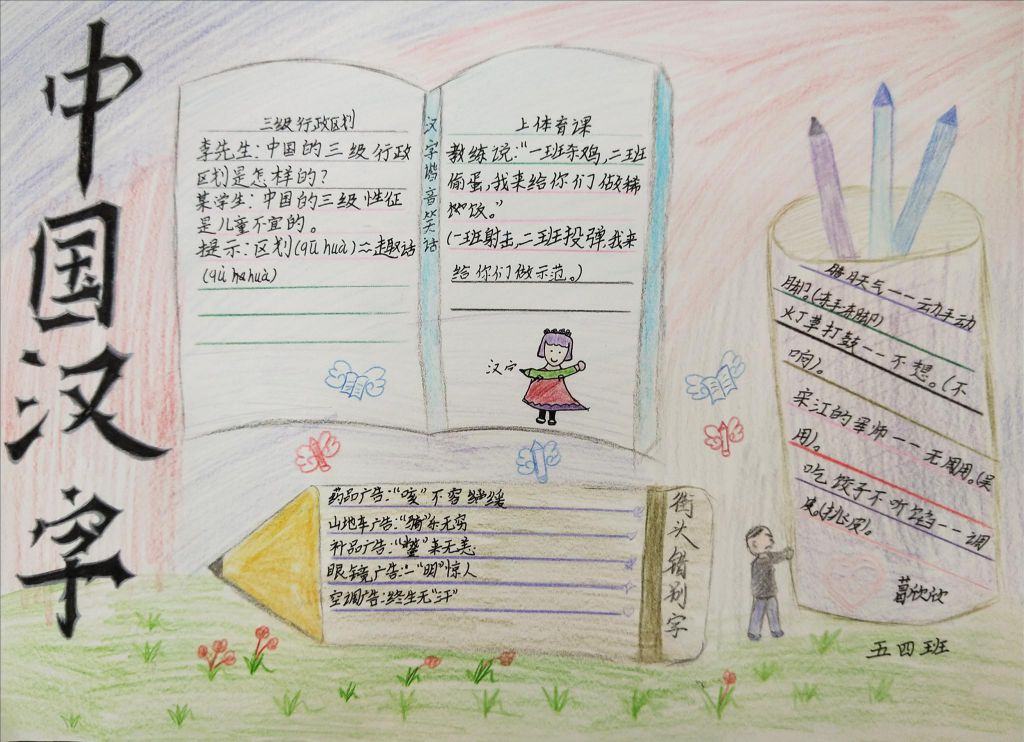 中国汉字
三级行政区划
李先生:中国的三级行政
区划是怎样的?
某学生:中国的三级性征
是儿童不宜的。
提示:区划(qū huà)≈趣话
(qù huà)
汉字谐音笑话
上体育课
教练说:“一班杀鸡,二班
偷蛋,我来给你们做稀
饭。”
(一班射击,二班投弹,我来
给你们做示范。)
汉字
腊月天气——动手动
脚。(冻手冻脚)
灯草打鼓——不想。(不
响)。
宋江的军师——无用。(吴
用)。
吃饺子不吃馅——调
皮。(挑皮)。
葛欣欣
五四班
街头错别字
药品广告:“咳”不容缓
山地车广告:“骑”乐无穷
补品广告:“鳖”来无恙
眼镜广告:一“明”惊人
空调广告:终生无“汗”